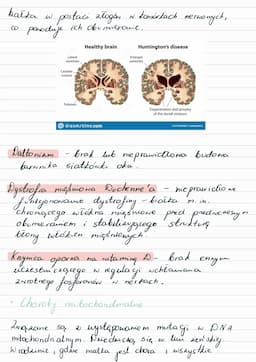 białka w postaci złogów w komórkach nerwowych,
co powoduje ich obumieranie.
Healthy brain
Huntington's disease
Lateral ventricle
Enlarged ventricle
Caudate nucleus
Putamen
Degeneration and atrophy of the dorsal striatum
Daltonizm - brak lub nieprawidłowa budowa
barwnika siatkówki oka.
Dystrofia mięśniowa Duchenne'a - nieprawidłowe
funkcjonowanie dystrofiny - białka m.in.
chroniącego włókna mięśniowe przed przedwczesnym
obumieraniem i stabilizującego strukturę
błony włókien mięśniowych
Krzywica oporna na witaminę D - brak enzymu
uczestniczącego w regulacji wchłaniania
zwrotnego fosforanów w nerkach.
Choroby mitochondrialne
Związane są z występowaniem mutacji w DNA
mitochondrialnym. Dziedziczą się w linii żeńskiej
W rodzinie, gdzie matka jest chora, wszystkie